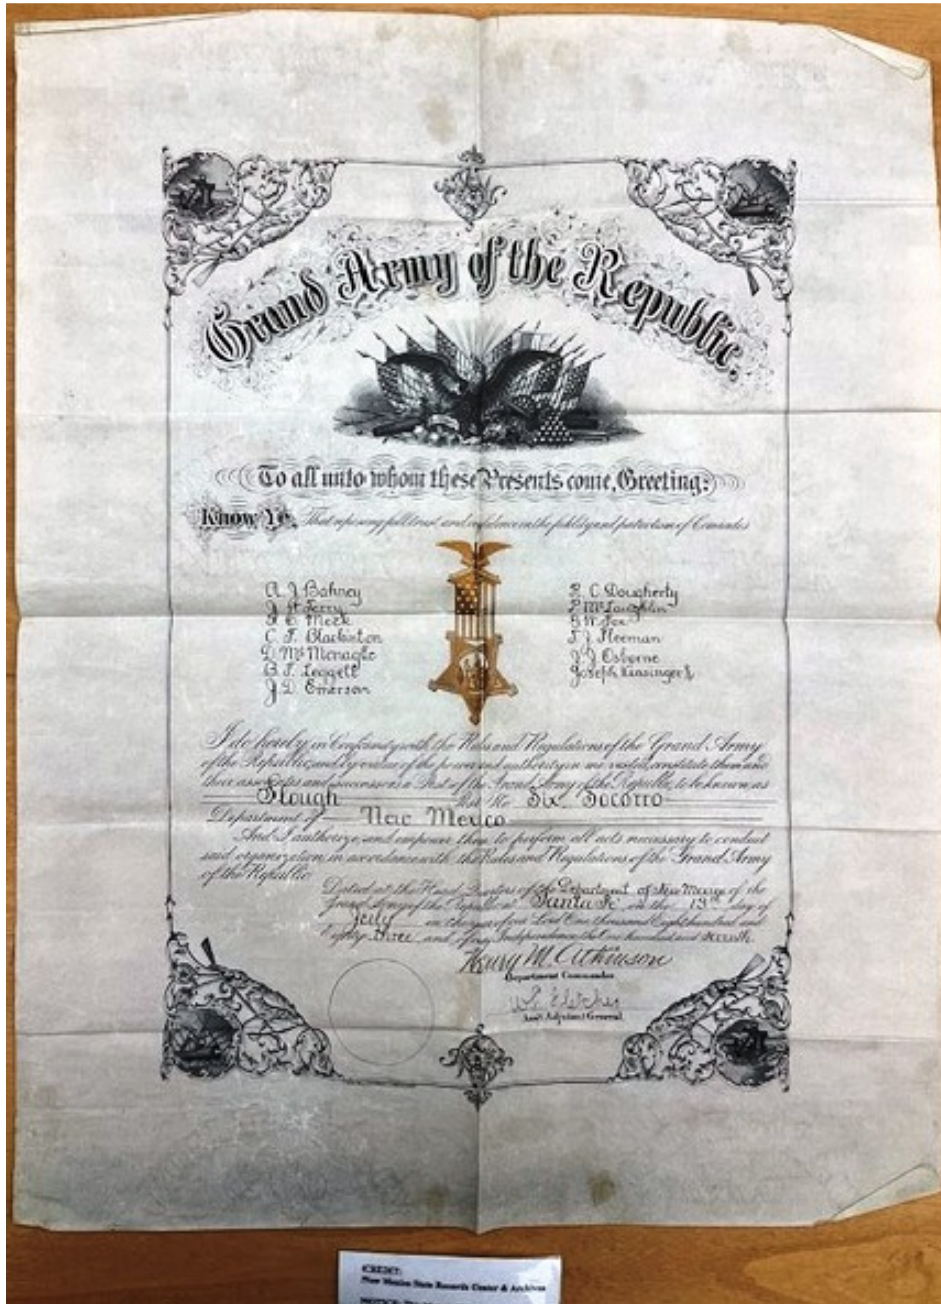 Grand Army of the Republic.
To all unto whom these Presents come, Greeting:
Know Ye, That reposing full trust and confidence in the fidelity and patriotism of Comrades
A. J. Bahney
J. Terry
Meek
C. F. Blackinton
D. McMonagle
B. F. Leggett
J. D. Emerson
R. C. Dougherty
P. McLaughlin
G. W. Fox
T. J. Fleeman
J. J. Osborne
Joseph Kinsinger
I do hereby in Conformity with the Rules and Regulations of the Grand Army
of the Republic, and by virtue of the power and authority in me vested, constitute them and
their associates and successors a Post of the Grand Army of the Republic, to be known as
Slough Post No Six Socorro
Department of New Mexico
And I authorize and empower them to perform all acts necessary to conduct
said organization in accordance with the Rules and Regulations of the Grand Army
of the Republic
Dated at the Head Quarters of the Department of New Mexico of the
Grand Army of the Republic at Santa Fe on the 13th day of
July in the year of our Lord One thousand Eight hundred and
Eighty three and of our Independence the One hundred and seventh
Henry M. Atkinson
Department Commander
Fletcher
Ass't Adjutant General.
CREDIT:
New Mexico State Records Center & Archives